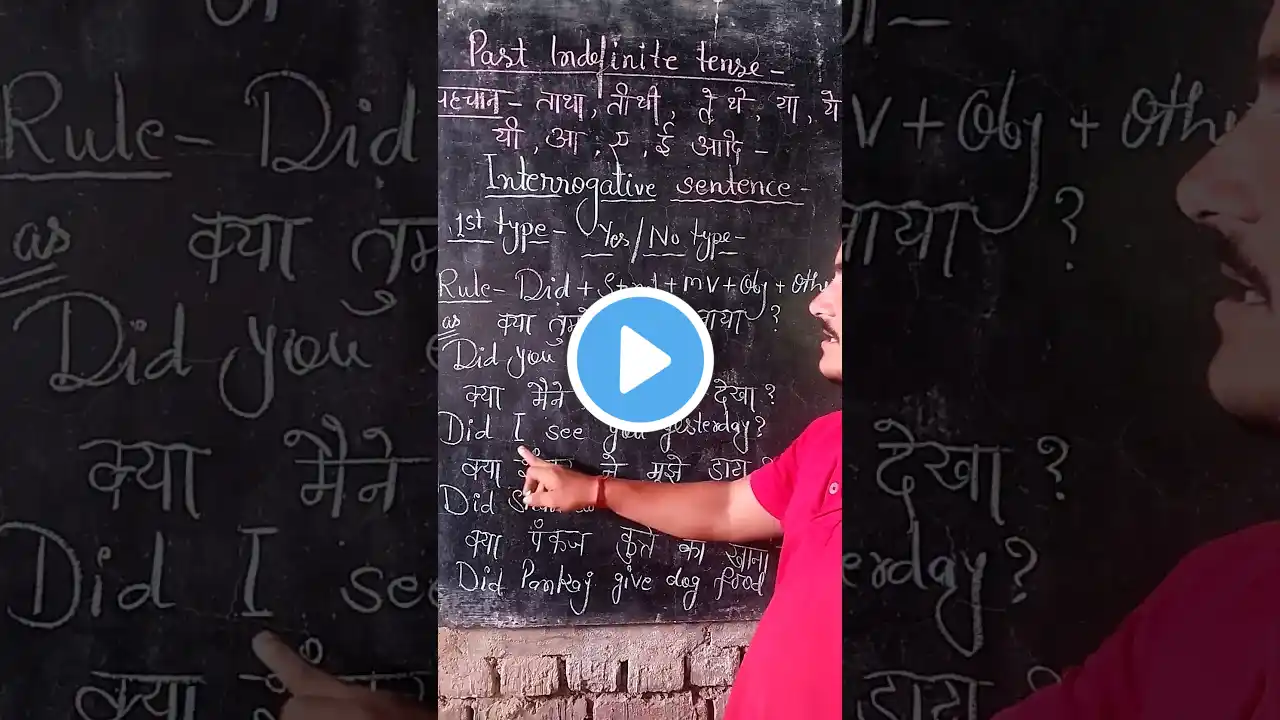 Past Indefinite tense -
पहचान - ताथा, तीथी, ते थे, या, ये
यी, आ, ए, ई आदि -
Interrogative sentence -
1st type - Yes/No type -
Rule - Did + + mv + Obj + Oth
as क्या ?
Did you
क्या मैने देखा ?
Did I see you yesterday?
क्या ने मुझे
Did
क्या पंकज कुत्ते को खाना
Did Pankaj give dog food